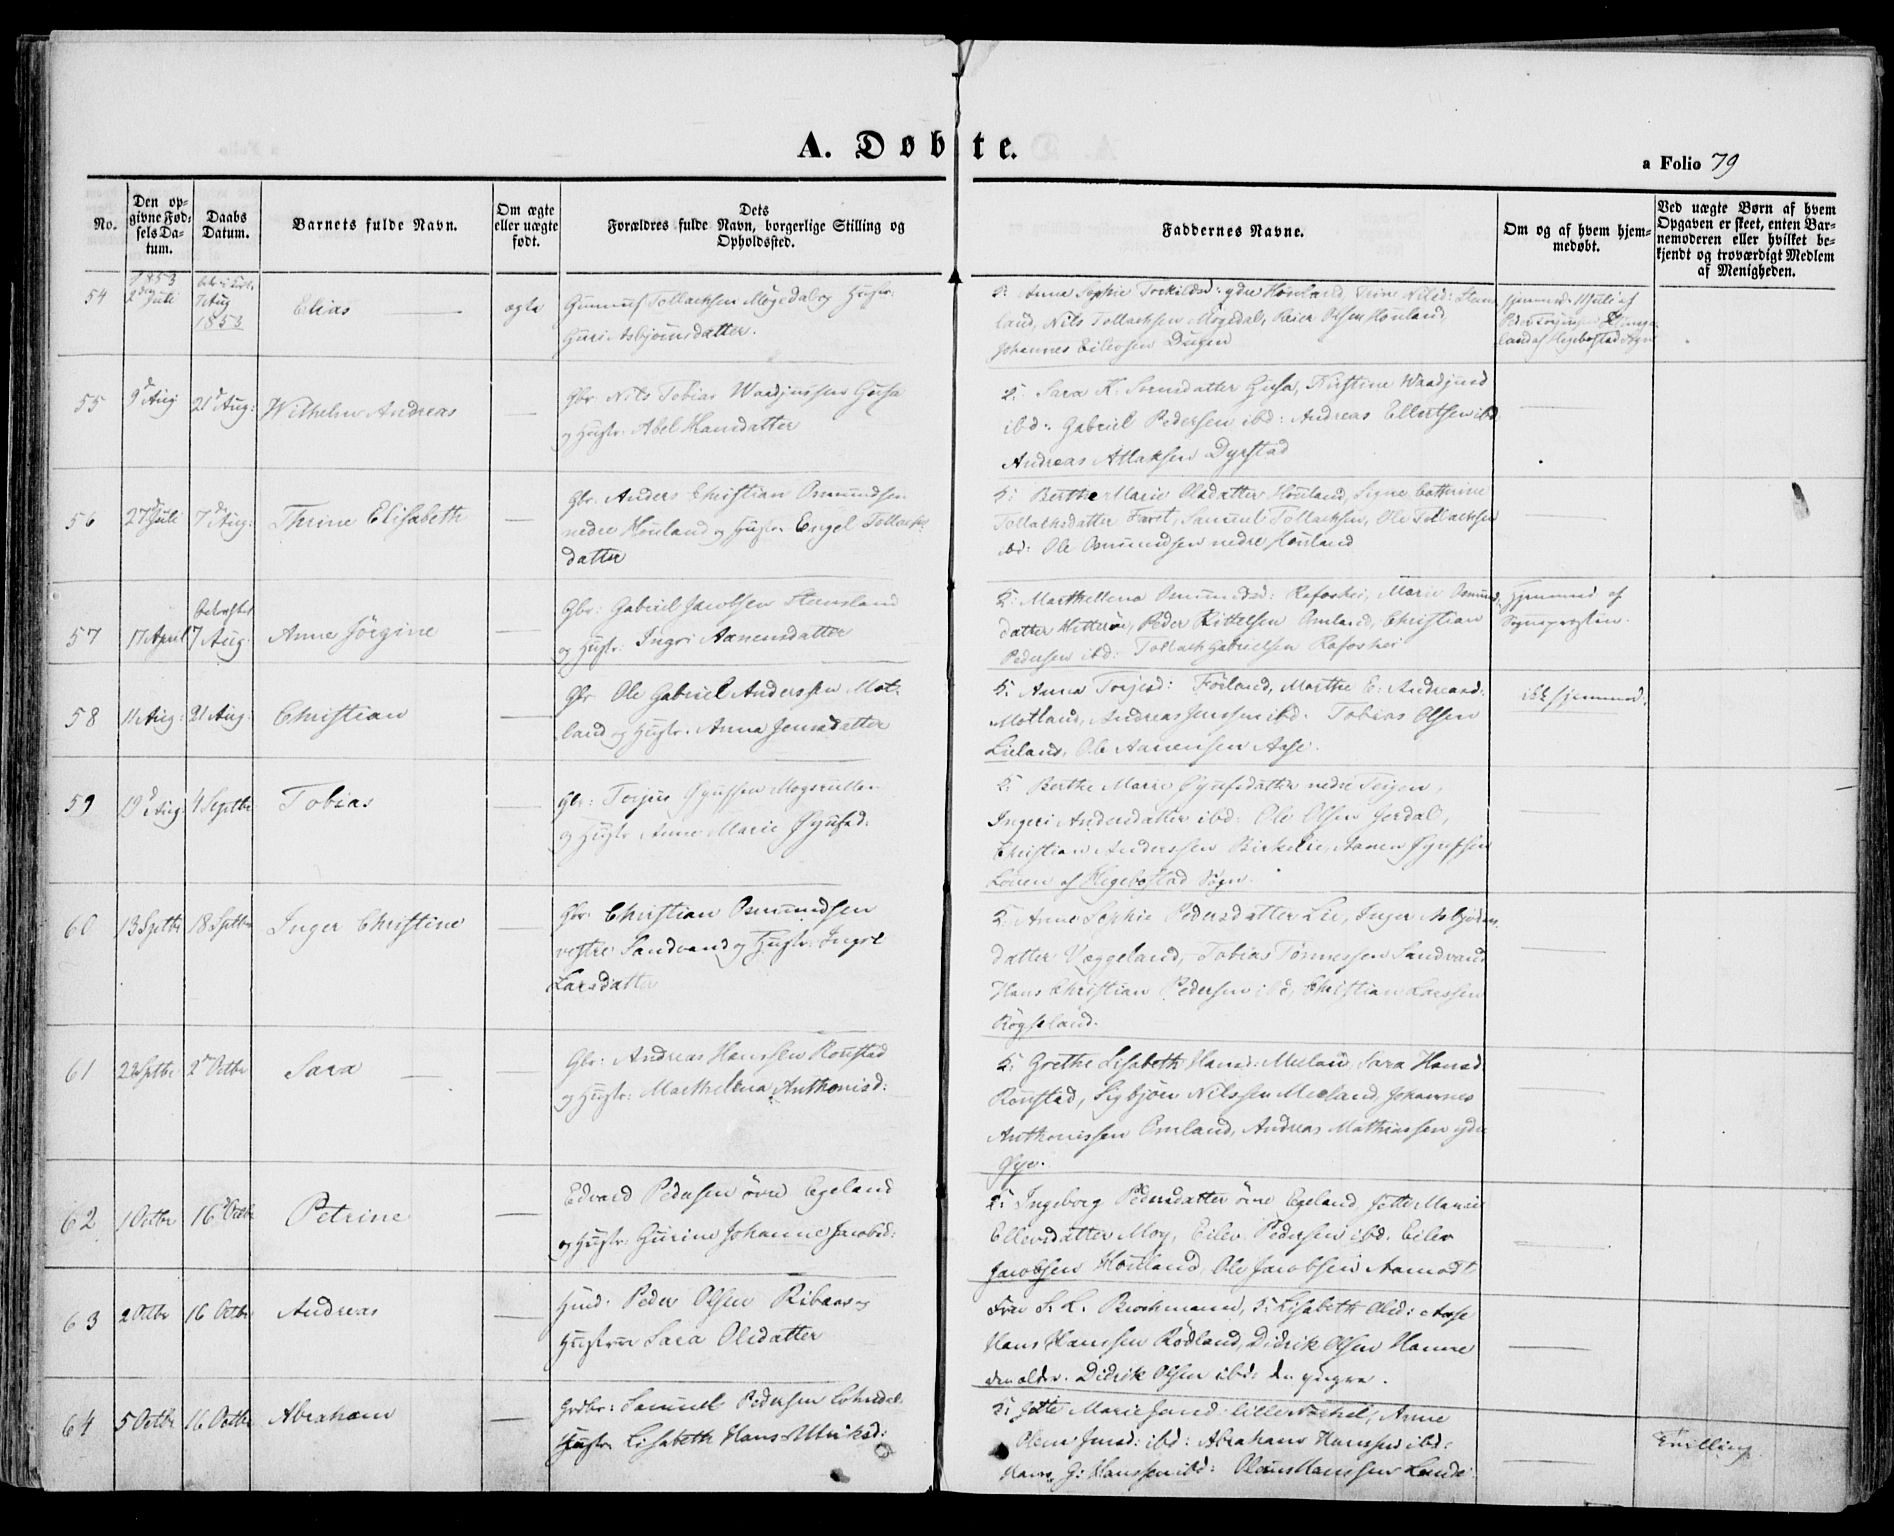 A. Døbte.
a Folio 79
No.
Den op-
givne Fød-
sels Da-
tum.
Daabs
Datum.
Barnets fulde Navn.
Om ægte
eller uægte
født.
Dets
Forældres fulde Navn, borgerlige Stilling og
Opholdssted.
Faddernes Navne.
Om og af hvem hjem-
medøbt.
Ved uægte Børn af hvem
Opgaven er skeet, enten Bar-
nemoderen eller hvilket be-
kjendt og troværdigt Medlem
af Menigheden.
54
1853
2den Juli
7 Aug
1853
Elias
ægte
Gunnuf Tollachsen Møgedal og Hustr:
Guri Asbjørnsdatter.
Anna Sophie Torkildsd: ydre Houland, Trine Nilsd:
land, Nils Tollachsen Møgedal, Olsen Houland
Johannes Eilevsen
hjemmed. Juli af
land af Hegebostad Sogn
55
9d Aug
21d Aug:
Wilhelm Andreas
Gbr: Nils Tobias Gusa
og Hustr: Abel Hansdatter
5: Sara K. Gusa, Kirstine
ibd: Gabriel Pedersen ibd: Andreas Ellertsen ibd
Andreas Atlaksen Dyrstad
56
27d Juli
7d Aug:
Thrine Elisabeth
Gbr: Anders Christian Osmundsen
nedre Houland og Hustr. Engel Tollachs
datter
5: Berthe Marie Olsdatter Houland, Signe Cathrine
Tollachsdatter Faret, Samuel Tollachsen, Ole Tollachsen
ibd: Ole Osmundsen nedre Houland
57
17 April
7 Aug:
Anne Jørgine
Gbr: Gabriel Jacobsen Stensland
og Hustr: Ingri Aanensdatter
5: Marthe Lena Osmundsd: Rafoshei, Marie Osmund
datter Hitterøe, Peder Kittelsen Omland, Christian
Pedersen ibd: Tollach Gabrielsen Rafoshei
Hjemmed af
Sognepresten.
58
11 Aug:
21 Aug:
Christian
Gbr Ole Gabriel Anderssen Mot-
land og Hustr. Anna Jensdatter
5: Anna Torjesd: Førland, Marthe E: Andreasd:
Motland, Andreas Jenssen ibd. Tobias Olsen
Lieland, Ole Aanensen Aase.
ikke hjemmed.
59
19d Aug:
4 Septbr
Tobias
Gbr: Torjus Øyufsen
og Hustr Anne Marie Øyufsd:
5. Berthe Marie Øyufsdatter nedre
Ingeri Andersdatter ibd: Ole Olsen Jerdal,
Christian Anderssen Birkelie, Aanen Øyufsen
af Hegebostad Sogn.
60
13 Septbr
18 Septbr
Inger Christine
Gbr. Christian Osmundsen
vestre Sandvand og Hustr. Ingri
Larsdatter
5. Anne Sophie Pedersdatter Lie, Inger Asbjørns
datter Væggeland, Tobias Tønnessen Sandvand
Hans Christian Pedersen ibd, Christian Larssen
Røyseland.
61
Septbr
2d Octbr
Sara
Gbr: Andreas Hanssen Roustad
og Hustr: Marthe Lena Anthonisd:
5. Grethe Lisabeth Hansd: Meland, Sara Hansd
Roustad, Sigbjørn Nilssen Meeland, Johannes
Anthonissen Omland, Andreas Mathiassen ydre
Øye.
62
1 Octbr
16d Octbr
Petrine
Edvard Pedersen øvre Egeland
og Hustr: Gurine Johanne Jacobsd:
5: Ingeborg Pedersdatter øvre Egeland, Jette Marie
Ellevsdatter Moy, Eilev Pedersen ibd. Eilev
Jacobsen Houland, Ole Jacobsen Aamodt
63
2 Octbr
16 Octbr
Andreas
Huusd. Peder Olsen Ribaas og
Hustrue Sara Olsdatter
Frue S. L. Brochmann, 5: Lisabeth Olsd: Aase
Hans Hanssen Rødland, Didrik Olsen Hamre
den ældre. Didrik Olsen ibd: den yngre.
64
5 Octbr
16 Octbr
Abraham
Gbr: Samuel Pedersen
Hustr. Lisabeth Hans
5: Jette Marie lille Nøchel, Anne
Olena ibd: Abraham Hanssen ibd:
Hans G: Hanssen ibd: Olaus Hanssen Lande
Tvilling.